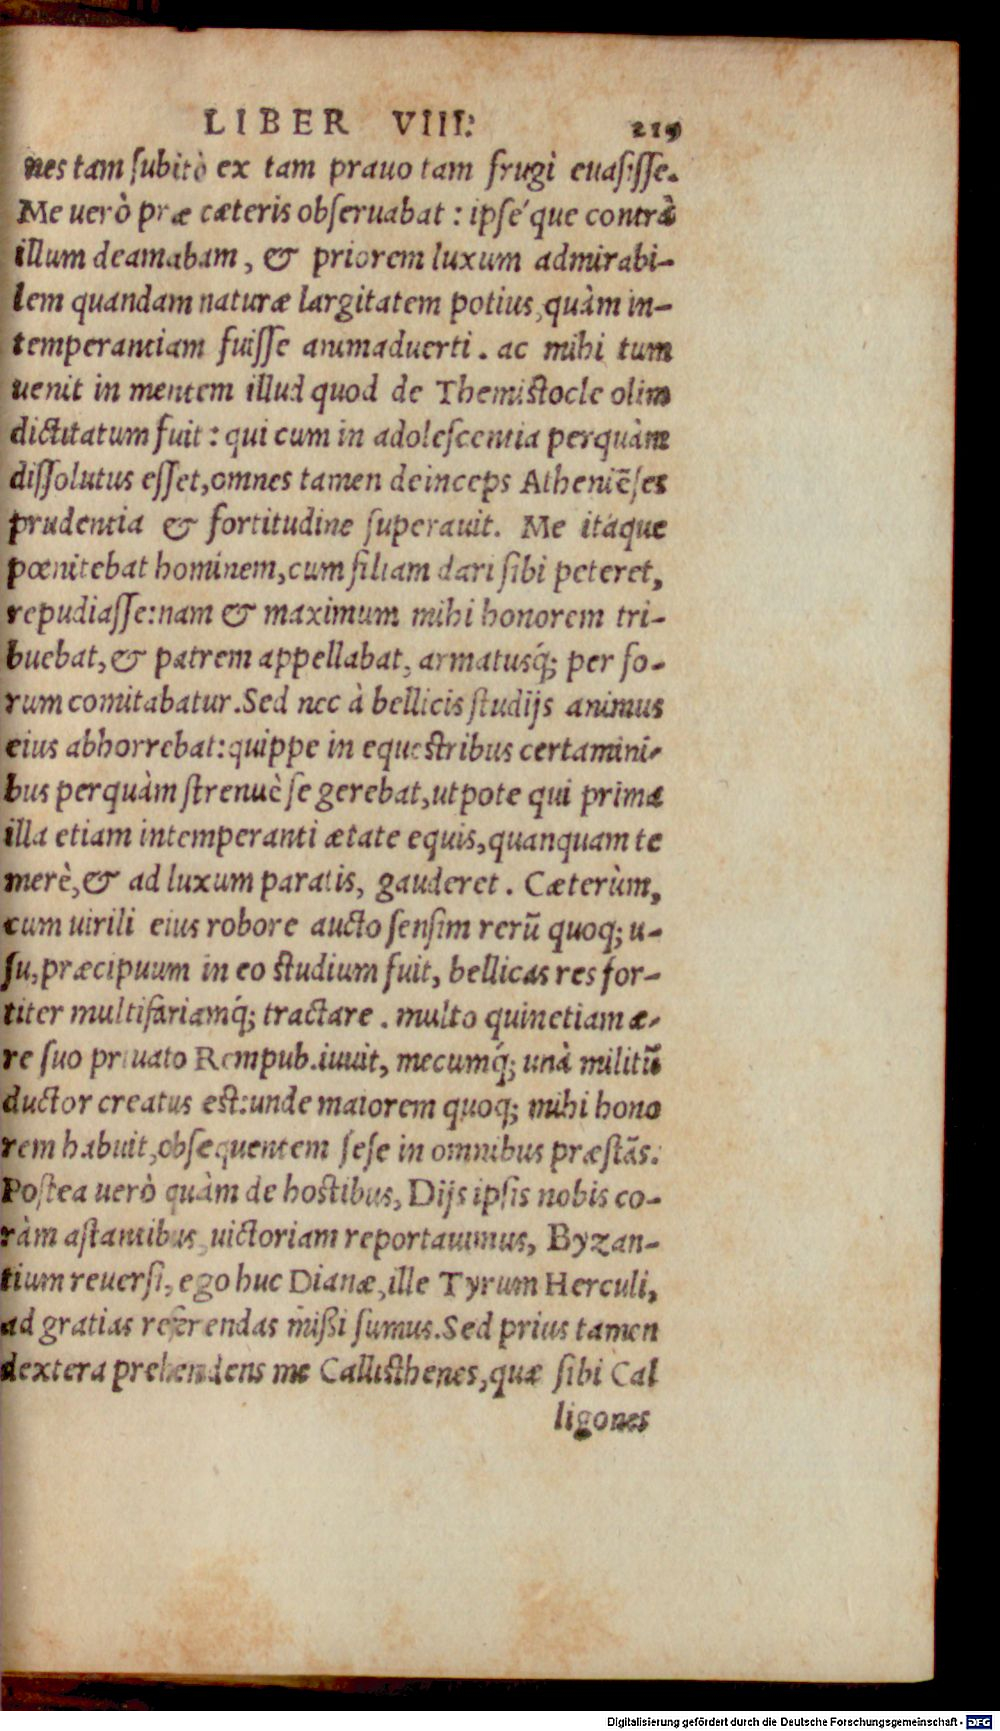 LIBER VIII. 219
nes tam ſubitò ex tam prauo tam frugi euaſiſſe.
Me uerò præ cæteris obſeruabat : ipſe´que contrà
illum deamabam, & priorem luxum admirabi-
lem quandam naturæ largitatem potius, quàm in-
temperantiam fuiſſe animaduerti. ac mihi tum
uenit in mentem illud quod de Themiſtocle olim
dictitatum fuit : qui cum in adoleſcentia perquàm
diſſolutus eſſet, omnes tamen deinceps Atheniẽſes
prudentia & fortitudine ſuperauit. Me itaque
pœnitebat hominem, cum filiam dari ſibi peteret,
repudiaſſe: nam & maximum mihi honorem tri-
buebat, & patrem appellabat, armatusq́; per fo-
rum comitabatur. Sed nec à bellicis ſtudijs animus
eius abhorrebat: quippe in equeſtribus certamini-
bus perquàm ſtrenuè ſe gerebat, utpote qui prima
illa etiam intemperanti ætate equis, quanquam te
merè, & ad luxum paratis, gauderet. Cæterùm,
cum uirili eius robore aucto ſenſim rerũ quoq; u-
ſu, præcipuum in eo ſtudium fuit, bellicas res for-
titer multifariamq́; tractare. multo quinetiam æ-
re ſuo priuato Rempub. iuuit, mecumq́; unà militũ
ductor creatus eſt: unde maiorem quoq; mihi hono
rem habuit, obſequentem ſeſe in omnibus præſtãs.
Poſtea uerò quàm de hoſtibus, Dijs ipſis nobis co-
ràm aſtantibus, uictoriam reportauimus, Byzan-
tium reuerſi, ego huc Dianæ, ille Tyrum Herculi,
ad gratias referendas mißi ſumus. Sed prius tamen
dextera prehendens me Calliſthenes, quæ ſibi Cal
ligones
Digitalisierung gefördert durch die Deutsche Forschungsgemeinschaft - DFG